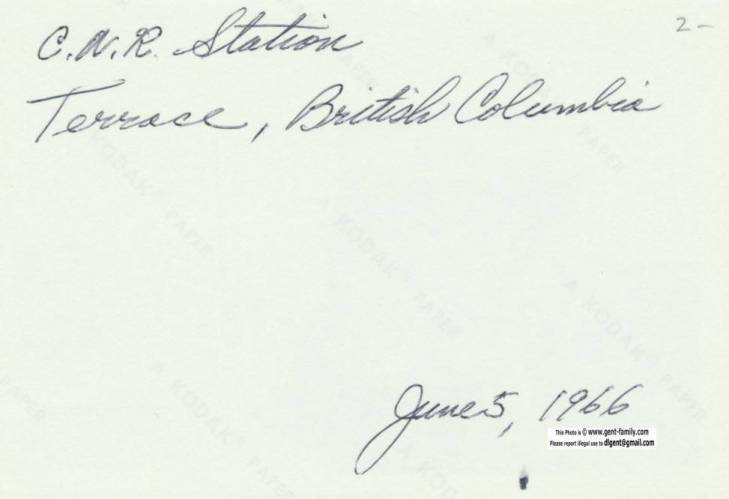 2-
C.N.R. Station
Terrace, British Columbia
A KODAK PAPER
A KODAK PAPER
A KODAK PAPER
A KODAK PAPER
June 5, 1966
This Photo is © www.gent-family.com
Please report illegal use to digent@gmail.com